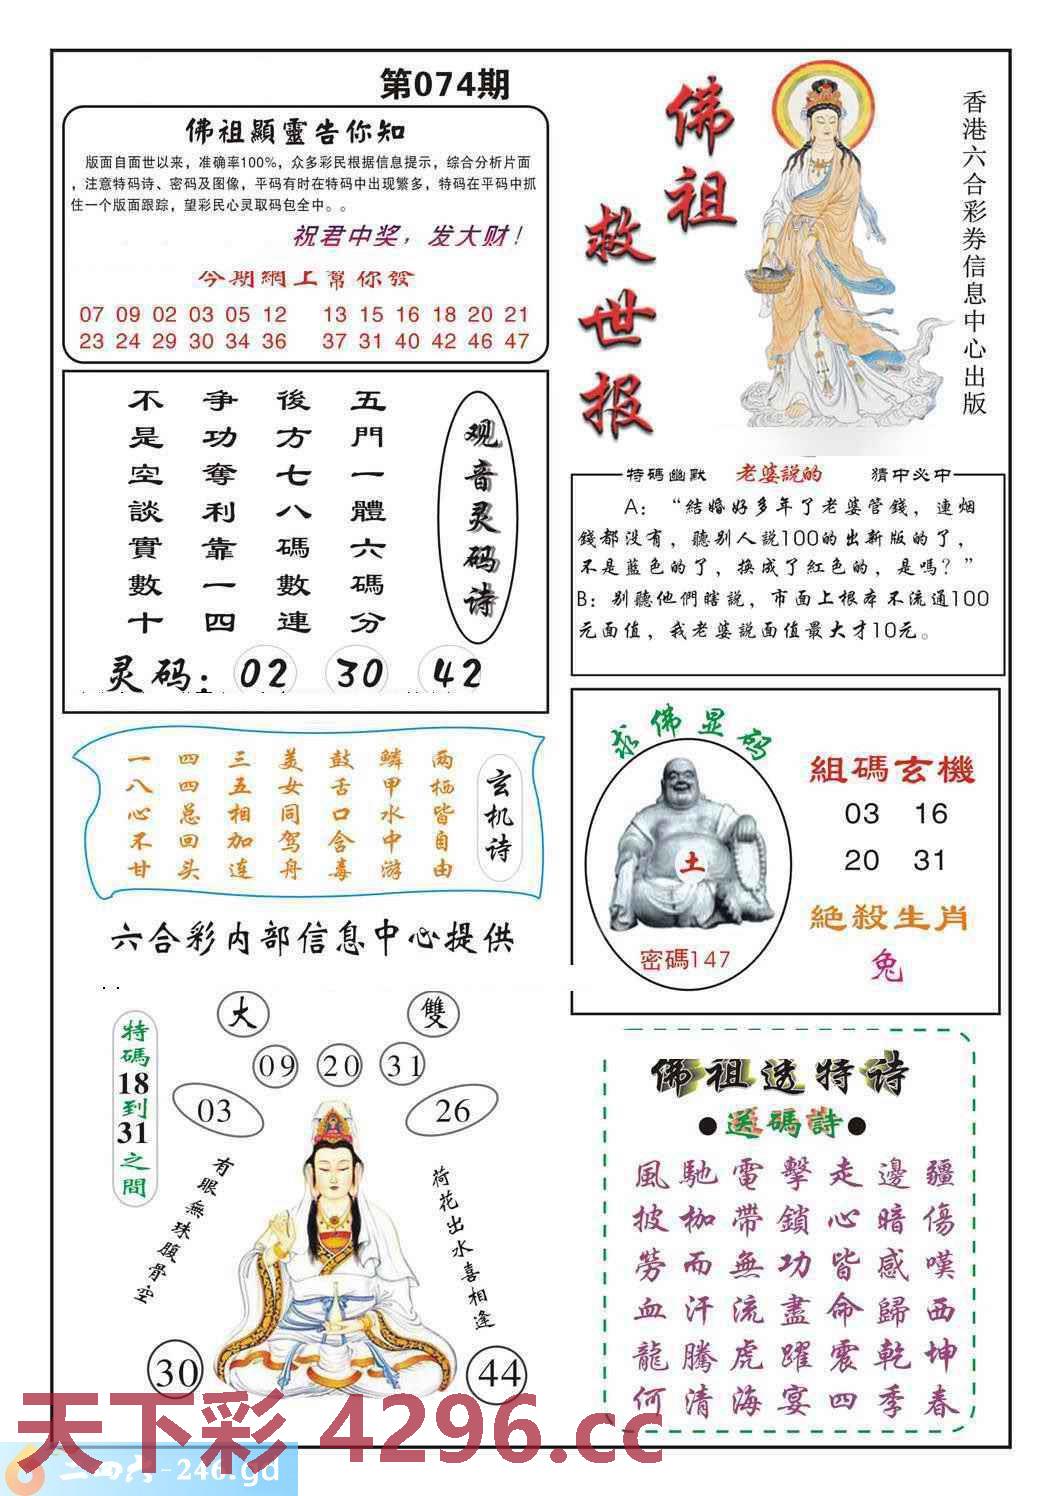 第074期
佛祖顯靈告你知
版面自面世以来，准确率100%，众多彩民根据信息提示，综合分析片面
，注意特码诗、密码及图像，平码有时在特码中出现繁多，特码在平码中抓
住一个版面跟踪，望彩民心灵取码包全中。。
祝君中奖，发大财！
今期網上幫你發
07 09 02 03 05 12 13 15 16 18 20 21
23 24 29 30 34 36 37 31 40 42 46 47
佛祖
救世报
香港六合彩券信息中心出版
观音灵码诗
五門一體六碼分
後方七八碼數連
爭功奪利靠一四
不是空談實數十
灵码：02 30 42
特碼幽默 老婆說的 猜中必中
A：“結婚好多年了老婆管錢，連烟
錢都没有，聽别人説100的出新版的了，
不是藍色的了，换成了紅色的，是嗎？”
B：别聽他們瞎説，市面上根本不流通100
元面值，我老婆説面值最大才10元。
玄机诗
两栖皆自由
鳞甲水中游
鼓舌口含毒
美女同驾舟
三五相加连
四四总回头
一八心不甘
六合彩内部信息中心提供
求佛显码
土
密碼147
組碼玄機
03 16
20 31
絕殺生肖
兔
特碼18到31之間
大 雙
09 20 31
03 26
有眼無珠腹骨空
荷花出水喜相逢
30 44
佛祖透特诗
●送碼詩●
風馳電擊走邊疆
披枷帶鎖心暗傷
勞而無功皆感嘆
血汗流盡命歸西
龍騰虎躍震乾坤
何清海宴四季春
天下彩 4296.cc
二四六-246.gd